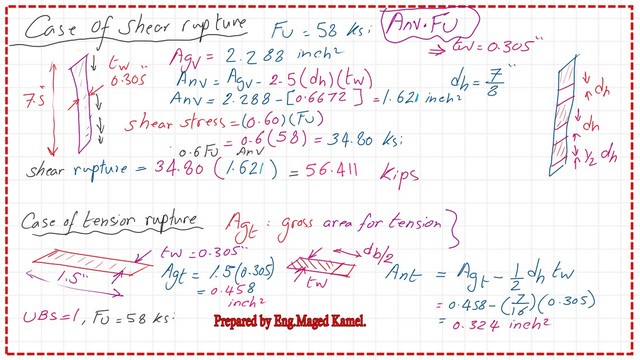 Case of shear rupture
Fu = 58 ksi
Anv·Fu
⇒ tw = 0.305"
tw
0.305"
7.5"
Agv = 2.288 inch²
Anv = Agv - 2.5(dh)(tw)
dh = 7/8"
Anv = 2.288 - [0.6672] = 1.621 inch²
shear stress = (0.60)(Fu)
= 0.6(58) = 34.80 ksi
0.6Fu Anv
shear rupture = 34.80 (1.621) = 56.411 kips
dh
dh
1/2 dh
Case of tension rupture
Agt: gross area for tension }
tw = 0.305"
1.5"
Agt = 1.5(0.305)
= 0.458
inch²
db/2
tw
Ant = Agt - 1/2 dh tw
= 0.458 - (7/16)(0.305)
= 0.324 inch²
UBS = 1, Fu = 58 ksi
Prepared by Eng.Maged Kamel.